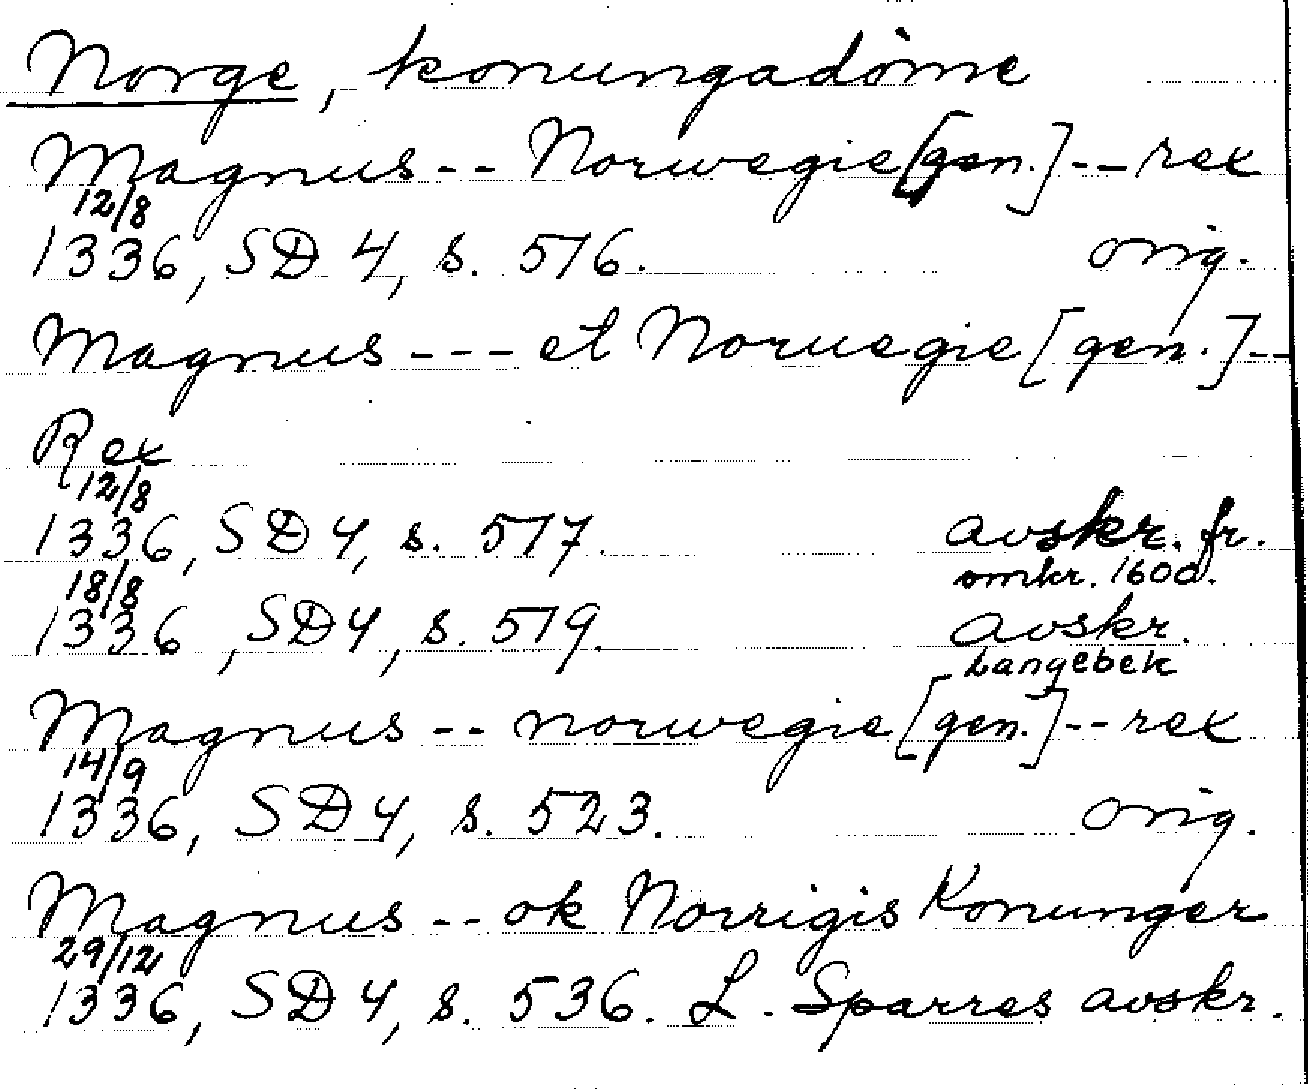 Norge, konungadöme
Magnus -- Norwegie [gen.] -- rex
12/8
1336, SD 4, s. 516. orig.
Magnus --- et Noruegie [gen.] --
Rex
12/8
1336, SD 4, s. 517. avskr. fr.
omkr. 1600.
18/8
1336, SD 4, s. 519. avskr.
Langebek
Magnus -- norwegie [gen.] -- rex
14/9
1336, SD 4, s. 523. orig.
Magnus -- ok Norrigis Konunger
29/12
1336, SD 4, s. 536. L. Sparres avskr.